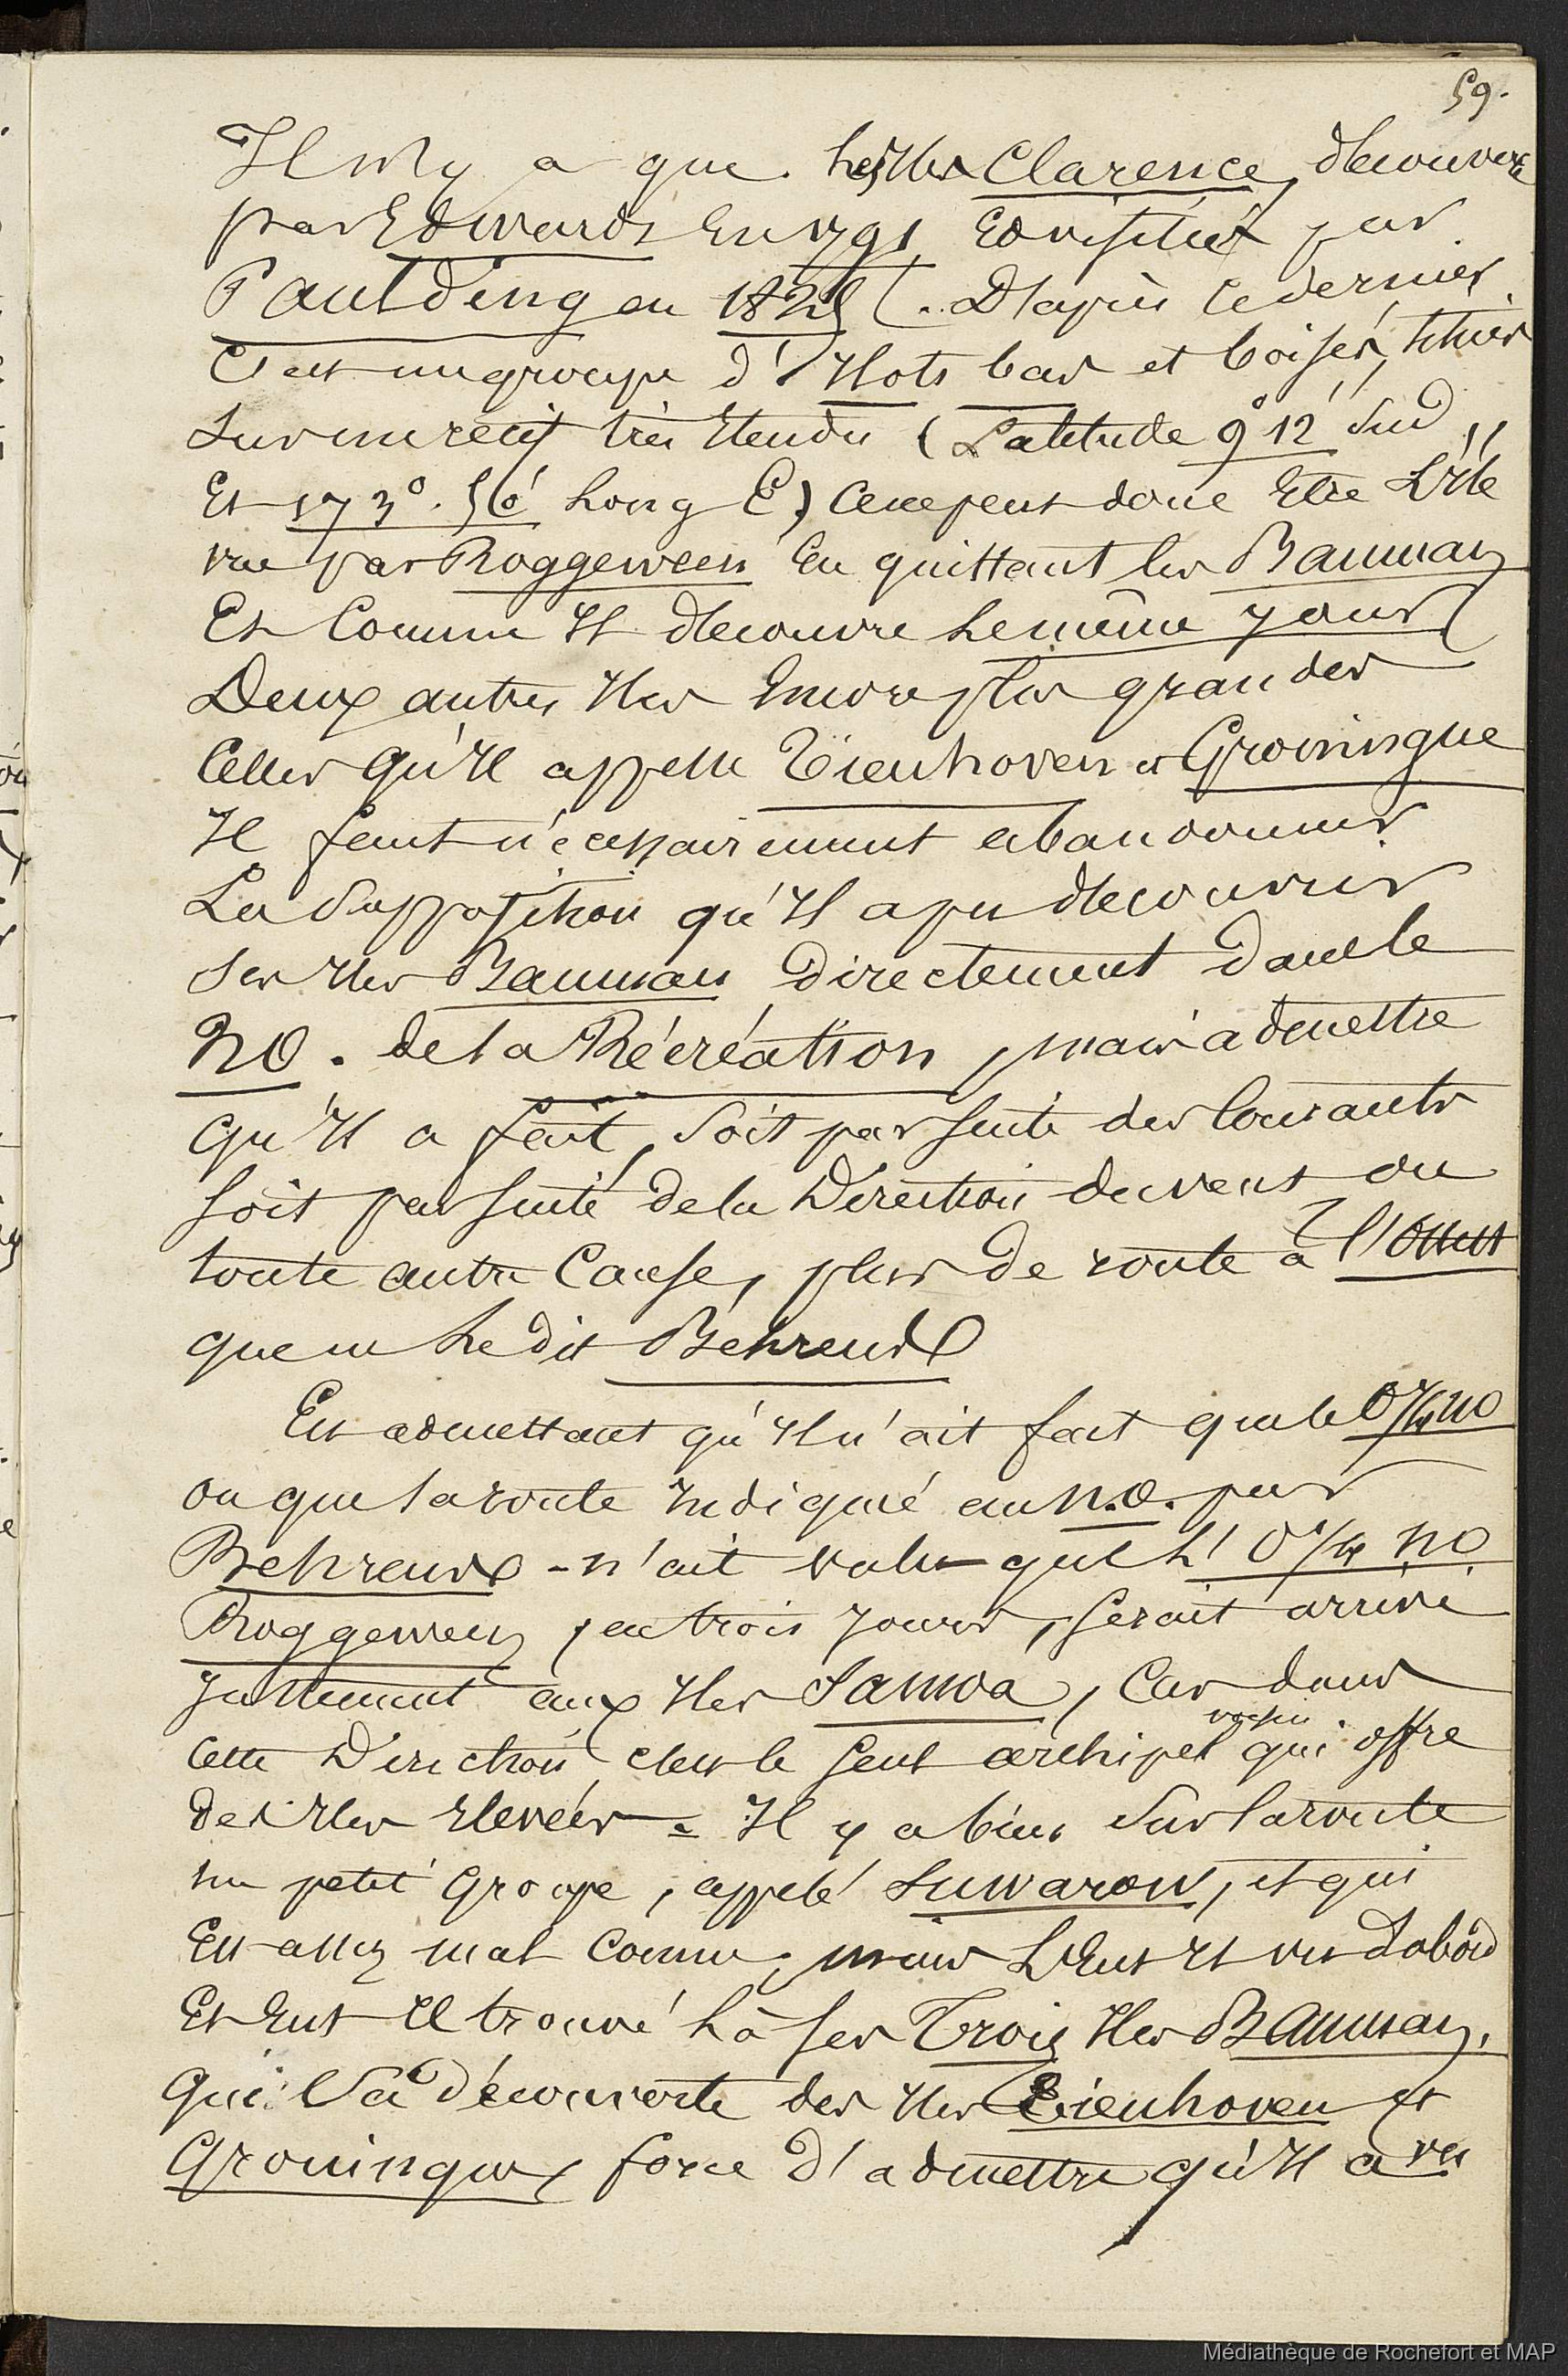 59.
Il n'y a que les Iles Clarence, découverte
par Edwards En 1791 Et visitées par
Paulding en 1825. D'après ce dernier
C'est un groupe d'Ilots bas et boisés, situés
Sur un récif très Etendu (Latitude 9° 12' Sud
Et 173°. 56' Long E) Ce ne peut donc Etre L'ile
vue par Roggeween En quittant les Bauman
Et Comme Il découvre Le même jour
Deux autres Iles Encore plus grandes
Celles qu'Il appelle Tienhoven et Groningue
Il faut nécessairement abandonner
La Supposition qu'Il a pu découvrir
Ses Iles Bauman Directement dans le
NO. de la Récréation, mais admettre
qu'Il a fait, Soit par suite des Courants
soit par suite de la Direction du vent ou
toute autre Cause, plus de route à l'Ouest
que ne Le dit Behrens
En admettant qu'Il n'ait fait que le O 1/4 NO
ou que la route Indiqué au N.O. par
Behrens - n'ait valu que L' O 1/4 NO
Roggeween, en trois jours, serait arrivé
justement aux Iles Samoa, Car dans
Cette Direction c'est le seul archipel voisin qui offre
des Iles Elevées = Il y a bien Sur la route
un petit Groupe, appelé Suwarow, et qui
Est assez mal Connu, mais L'Eut Il vu D'abord
Et Eut Il trouvé Là ses Trois Iles Bauman,
que la découverte des Iles Tienhoven et
Groningue force d'admettre qu'Il a vu
Médiathèque de Rochefort et MAP